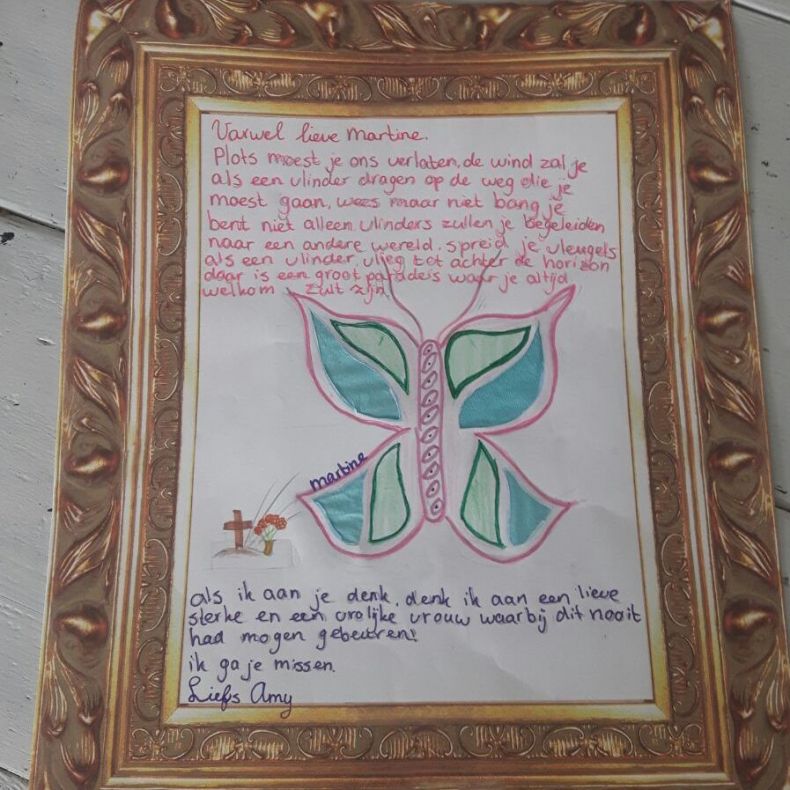 Varwel lieve Martine.
Plots moest je ons verlaten, de wind zal je
als een vlinder dragen op de weg die je
moest gaan, wees maar niet bang je
bent niet alleen vlinders zullen je begeleiden
naar een andere wereld. spreid je vleugels
als een vlinder, vlieg tot achter de horizon
daar is een groot paradeis waar je altijd
welkom zult zijn
martine
als ik aan je denk, denk ik aan een lieve
sterke en een vrolijke vrouw waarbij dit nooit
had mogen gebeuren!
ik ga je missen.
Liefs Amy